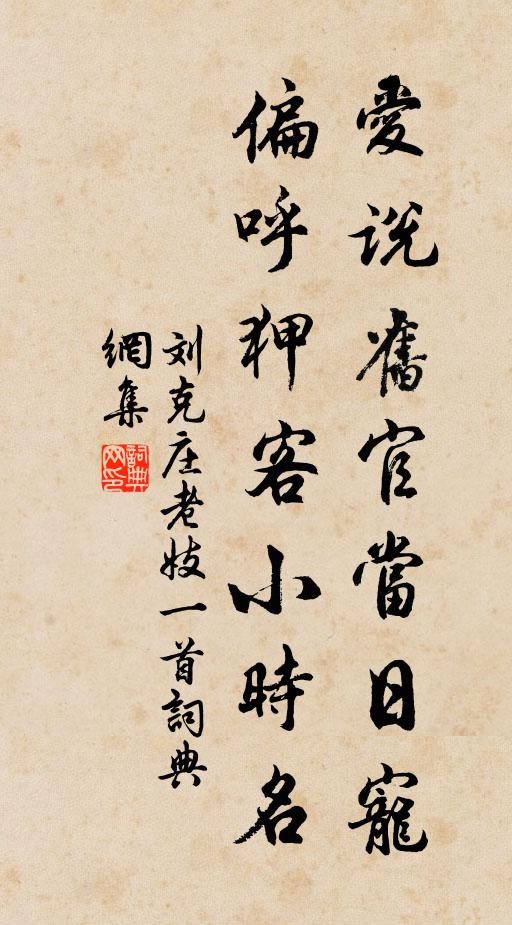 愛説舊官當日寵
偏呼狎客小時名
刘克庄老妓一首詞典
網集
詞典網印